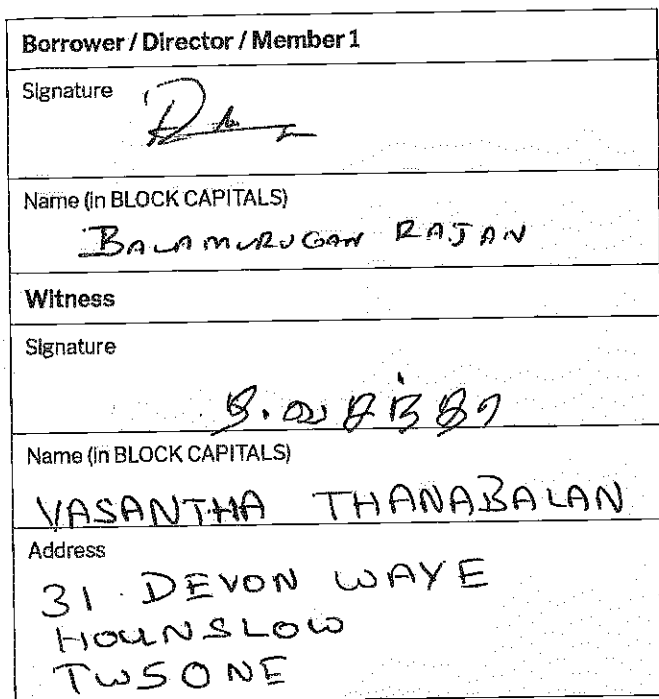 Borrower / Director / Member 1
Signature
Name (in BLOCK CAPITALS)
BALAMURUGAN RAJAN
Witness
Signature
த. வசந்தா
Name (in BLOCK CAPITALS)
VASANTHA THANABALAN
Address
31 DEVON WAYE
HOUNSLOW
TW5 0NE